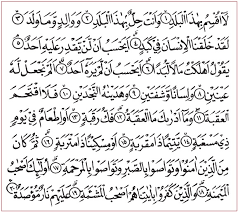 لَآ أُقْسِمُ بِهَٰذَا ٱلْبَلَدِ ١ وَأَنتَ حِلٌّۢ بِهَٰذَا ٱلْبَلَدِ ٢ وَوَالِدٍ وَمَا وَلَدَ ٣
لَقَدْ خَلَقْنَا ٱلْإِنسَٰنَ فِى كَبَدٍ ٤ أَيَحْسَبُ أَن لَّن يَقْدِرَ عَلَيْهِ أَحَدٌ ٥
يَقُولُ أَهْلَكْتُ مَالًا لُّبَدًا ٦ أَيَحْسَبُ أَن لَّمْ يَرَهُۥٓ أَحَدٌ ٧ أَلَمْ نَجْعَل لَّهُۥ
عَيْنَيْنِ ٨ وَلِسَانًا وَشَفَتَيْنِ ٩ وَهَدَيْنَٰهُ ٱلنَّجْدَيْنِ ١٠ فَلَا ٱقْتَحَمَ
ٱلْعَقَبَةَ ١١ وَمَآ أَدْرَىٰكَ مَا ٱلْعَقَبَةُ ١٢ فَكُّ رَقَبَةٍ ١٣ أَوْ إِطْعَٰمٌ فِى يَوْمٍ
ذِى مَسْغَبَةٍ ١٤ يَتِيمًا ذَا مَقْرَبَةٍ ١٥ أَوْ مِسْكِينًا ذَا مَتْرَبَةٍ ١٦ ثُمَّ كَانَ
مِنَ ٱلَّذِينَ ءَامَنُوا۟ وَتَوَاصَوْا۟ بِٱلصَّبْرِ وَتَوَاصَوْا۟ بِٱلْمَرْحَمَةِ ١٧ أُو۟لَٰٓئِكَ أَصْحَٰبُ
ٱلْمَيْمَنَةِ ١٨ وَٱلَّذِينَ كَفَرُوا۟ بِـَٔايَٰتِنَا هُمْ أَصْحَٰبُ ٱلْمَشْـَٔمَةِ ١٩ عَلَيْهِمْ نَارٌ مُّؤْصَدَةٌۢ ٢٠